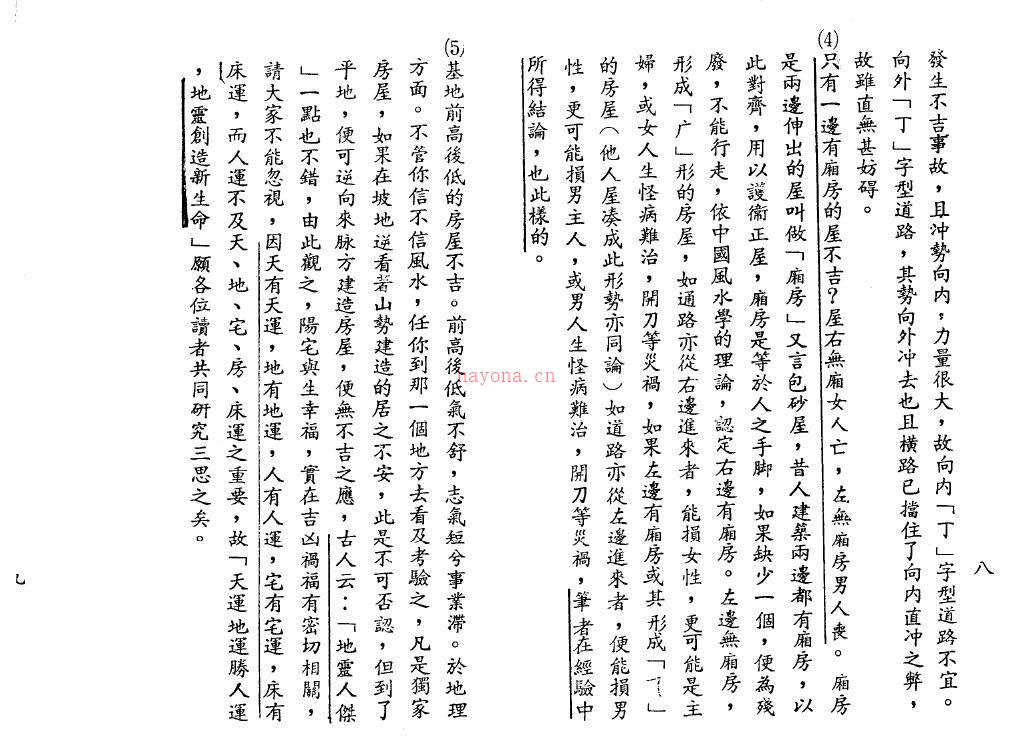 八
發生不吉事故，且冲勢向內，力量很大，故向內「丁」字型道路不宜。
向外「丁」字型道路，其勢向外冲去也且橫路已擋住了向內直冲之弊，
故雖直無甚妨碍。
(4)只有一邊有廂房的屋不吉？屋右無廂女人亡，左無廂房男人喪。廂房
是兩邊伸出的屋叫做「廂房」又言包砂屋，昔人建築兩邊都有廂房，以
此對齊，用以護衞正屋，廂房是等於人之手脚，如果缺少一個，便為殘
廢，不能行走，依中國風水學的理論，認定右邊有廂房。左邊無廂房，
形成「广」形的房屋，如通路亦從右邊進來者，能損女性，更可能是主
婦，或女人生怪病難治，開刀等災禍，如果左邊有廂房或其形成「」
的房屋（他人屋凑成此形勢亦同論）如道路亦從左邊進來者，便能損男
性，更可能損男主人，或男人生怪病難治，開刀等災禍，筆者在經驗中
所得結論，也此樣的。
(5)基地前高後低的房屋不吉。前高後低氣不舒，志氣短兮事業滯。於地理
方面。不管你信不信風水，任你到那一個地方去看及考驗之，凡是獨家
房屋，如果在坡地逆看著山勢建造的居之不安，此是不可否認，但到了
平地，便可逆向來脉方建造房屋，便無不吉之應，古人云：「地靈人傑
」一點也不錯，由此觀之，陽宅與生幸福，實在吉凶禍福有密切相關，
請大家不能忽視，因天有天運，地有地運，人有人運，宅有宅運，床有
床運，而人運不及天、地、宅、房、床運之重要，故「天運地運勝人運
，地靈創造新生命」願各位讀者共同研究三思之矣。
九
nayona.cn